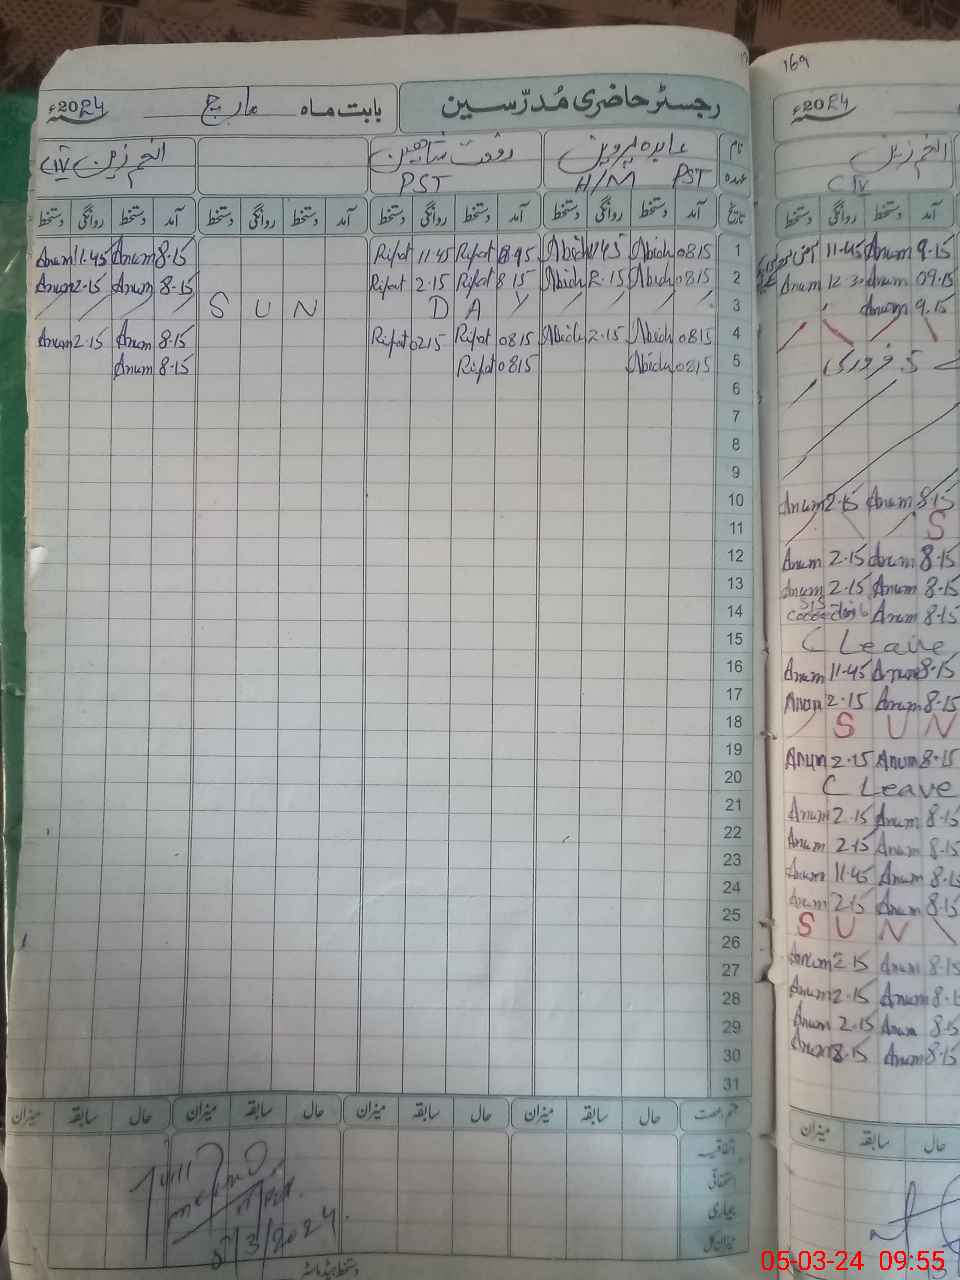 169
رجسٹر حاضری مُدرّسین
بابت ماہ مارچ 2024ء
2024ء
نام عابدہ پروین رفعت شاہین انعم زرین
عہدہ PST H/M PST
انعم زرین
تاریخ آمد دستخط روانگی دستخط آمد دستخط روانگی دستخط آمد دستخط روانگی دستخط آمد دستخط روانگی دستخط
آمد دستخط روانگی دستخط
Anum 11.45 Anum 8.15 Rifat 11.45 Rifat Abida 11.45 Abida 0815 1
Anum 2.15 Anum 8.15 Rifat 2.15 Rifat 8 15 Abida 2.15 Abida 0815 2
S U N D A Y 3
Anum 2.15 Anum 8.15 Rifat 0215 Rifat 0815 Abida 2.15 Abida 0815 4
Anum 8.15 Rifat 0815 Abida 0815 5
6
7
8
9
10
11
12
13
14
15
16
17
18
19
20
21
22
23
24
25
26
27
28
29
30
31
11.45 Anum 9.15
Anum Anum 09.15
Anum 9.15
5 فروری
Anum 2.15 Anum 8.15
S
Anum 2.15 Anum 8.15
Anum 2.15 Anum 8.15
Anum 8.15
C Leave
Anum 11.45 Anum 8.15
Anum 2.15 Anum 8.15
S U N
Anum 2.15 Anum 8.15
C Leave
Anum 2.15 Anum 8.15
Anum 2.15 Anum 8.15
Anum 11.45 Anum 8.15
Anum 2.15 Anum 8.15
S U N
Anum 2.15 Anum 8.15
Anum 2.15 Anum 8.15
Anum 2.15 Anum 8.15
Anum 8.15 Anum 8.15
قسم رخصت حال سابقہ میزان حال سابقہ میزان حال سابقہ میزان حال سابقہ میزان
حال سابقہ میزان
اتفاقیہ
استحقاقی
بیماری
میزان کل
5/3/2024
دستخط ہیڈ ماسٹر
05-03-24 09:55